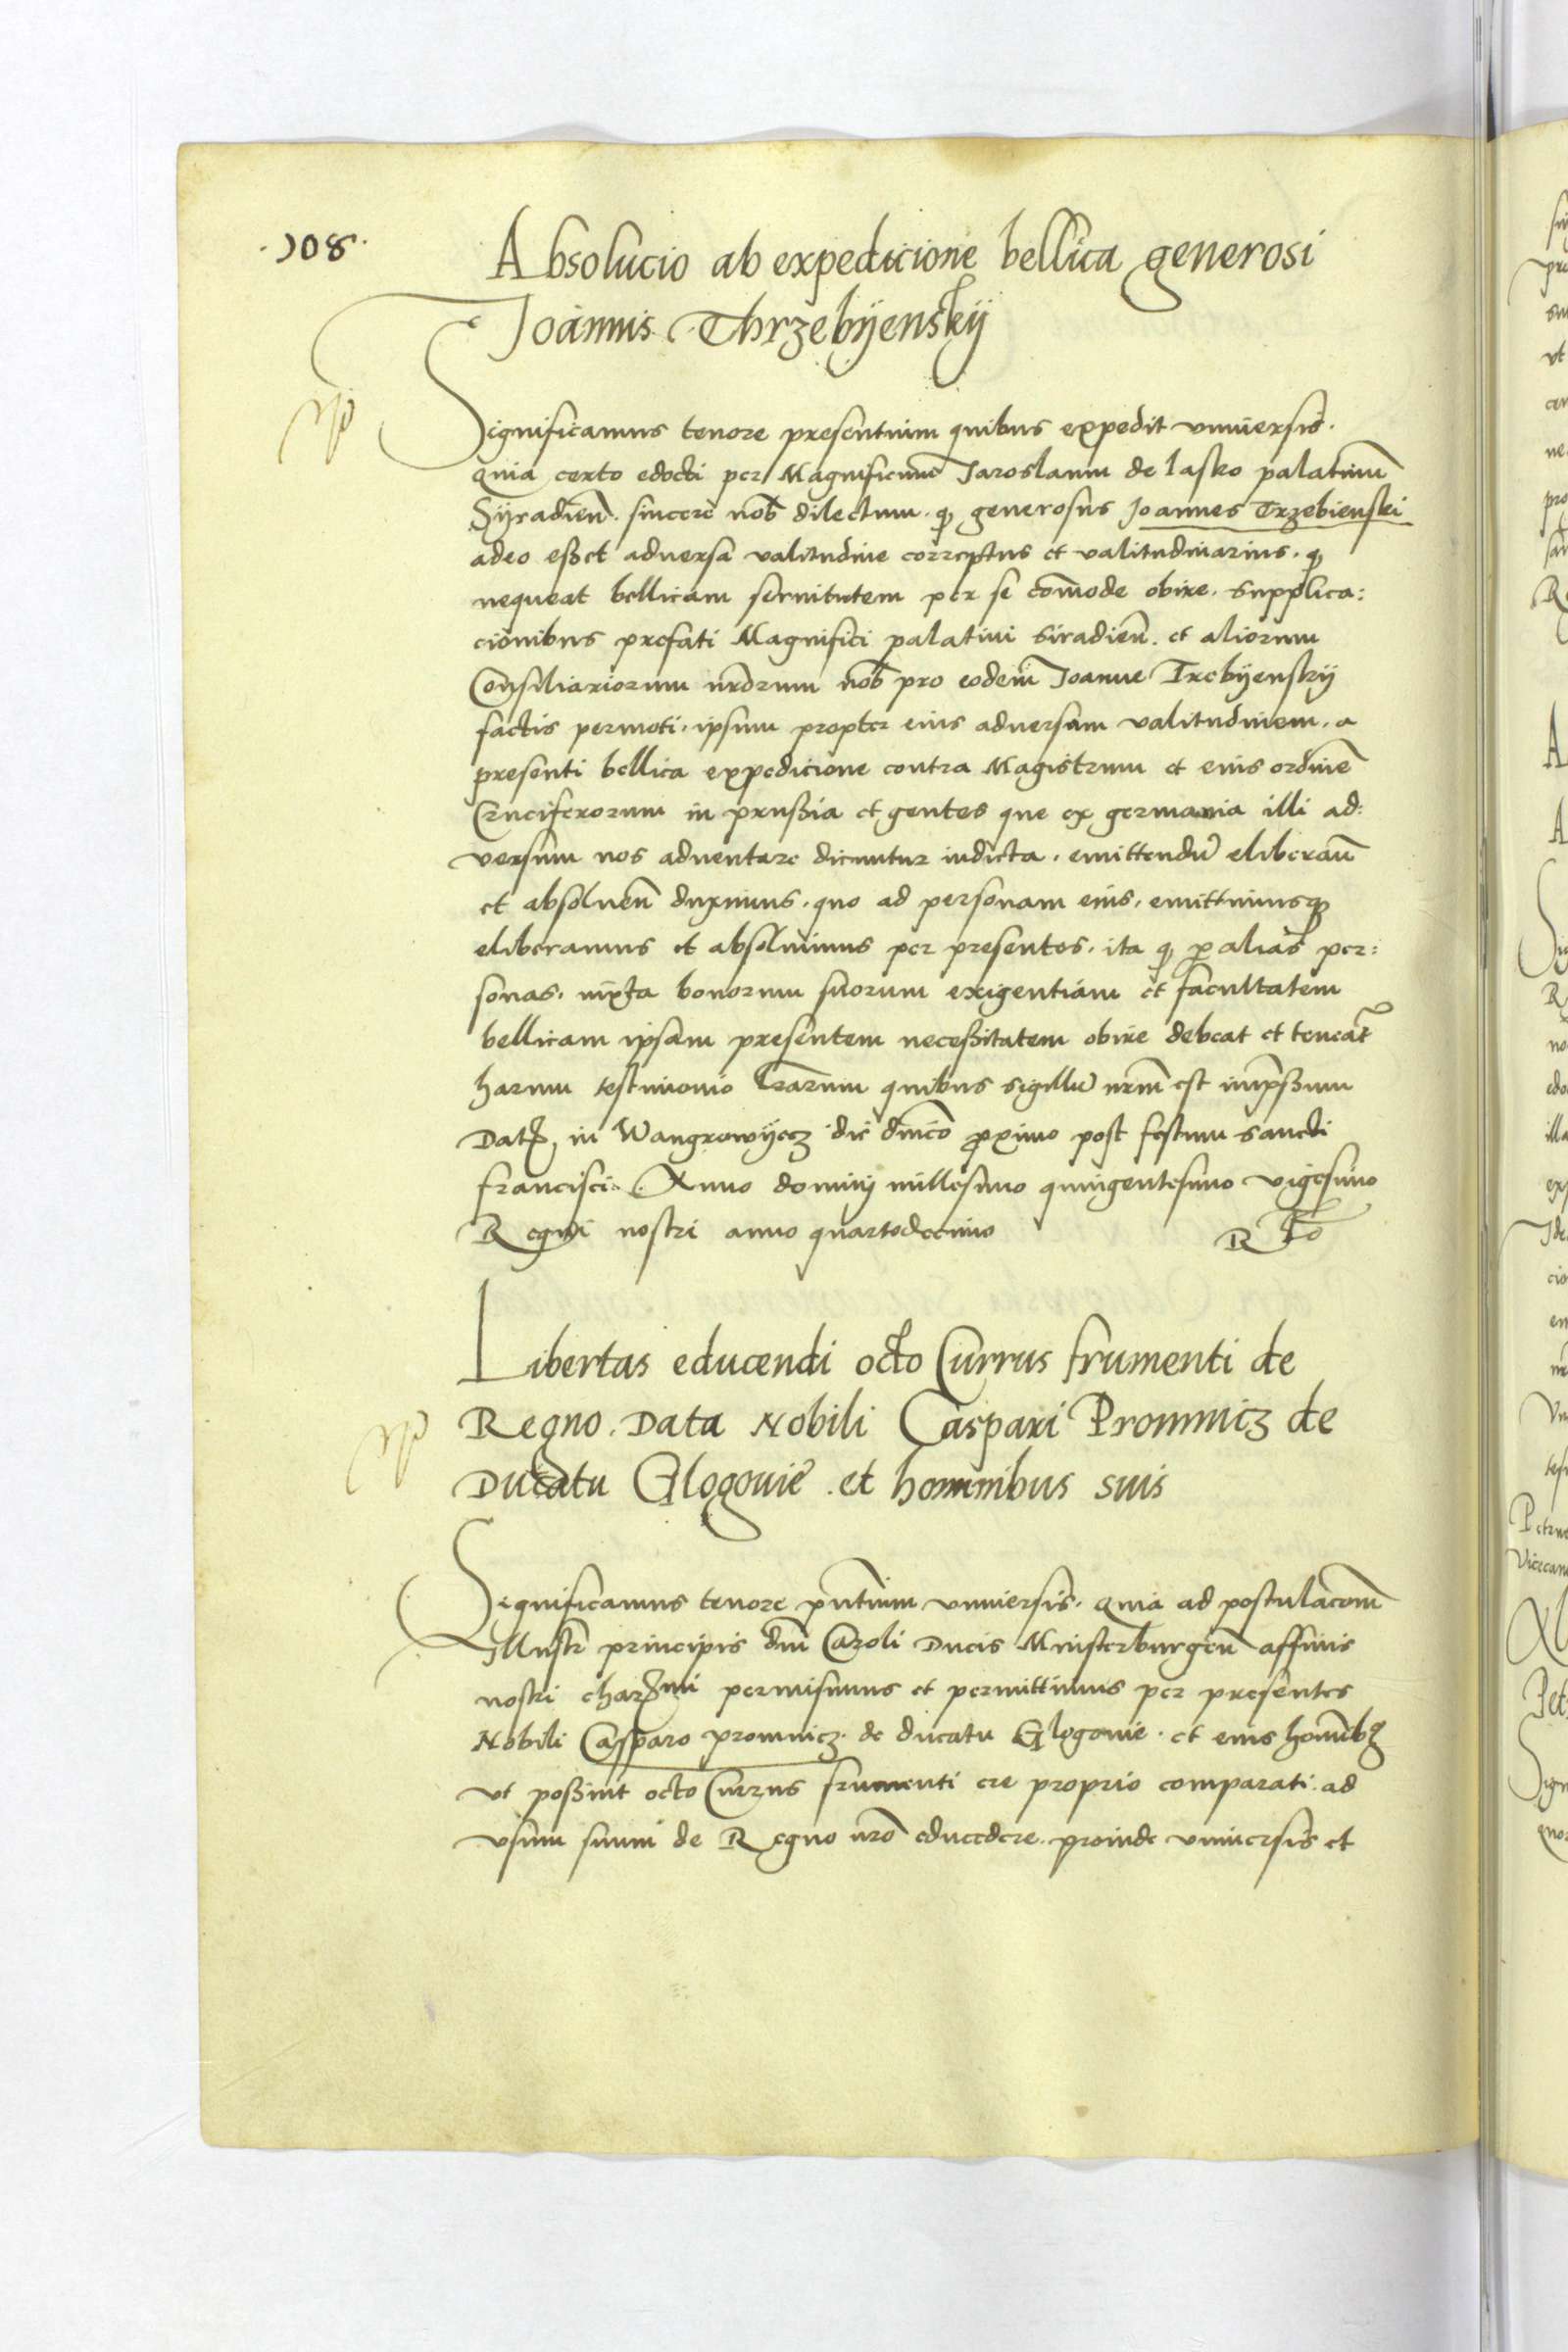 .108.
Absolucio ab expedicione bellica generosi
Joannis Thrzebyensky
Significamus tenore presentium quibus expedit universis.
quia certo edocti per Magnificum Jaroslaum de lasko palatinū
Syradień. sincere nob̄ dilectum. q generosus Joannes Trzebienski
adeo eßet adversa valitudine correptus et valitudinarius. q
nequeat bellicam servitutem per se com̄ode obire. supplica:
cionibus prefati Magnifici palatini siradień. et aliorum
Consiliariorum nrōrum nob̄ pro eodem Joanne Trebyensky
factis permoti. ipsum propter eius adversam valitudinem. a
presenti bellica expedicione contra Magistrum et eius ordinē
Cruciferorum in prußia et gentes que ex germania illi ad:
versum nos adventare dicuntur indicta. emittendū eliberan̄
et absolven̄ duximus. quo ad personam eius. emittimusq
eliberamus et absolvimus per presentes. ita q p alias per:
sonas. iuxta bonorum suorum exigentiam et facultatem
bellicam ipsam presentem neceßitatem obire debeat et teneat̄
harum testimonio lrārum quibus sigillū nrm̄ est imp̄ßum
Dat in Wangrowyecz die dnīco proximo post festum sancti
francisci. Anno dominij millesimo quingentesimo vigesimo
Regni nostri anno quartodecimo R To
Libertas educendi octo Currus frumenti de
Regno. Data Nobili Caspari Promnicz de
Ducatu Glogovie. et hominibus suis
Significamus tenore pn̄tium universis. quia ad postulacōnem
Illustr̄ principis dn̄i Caroli Ducis Mnisterburgen̄ affinis
nostri charmi permisimus et permittimus per presentes
Nobili Casparo promnicz. de ducatu Glogovie. et eius homībz
ut poßint octo Currus frumenti ere proprio comparati. ad
usum suum de Regno nrō educedere. proinde universis et